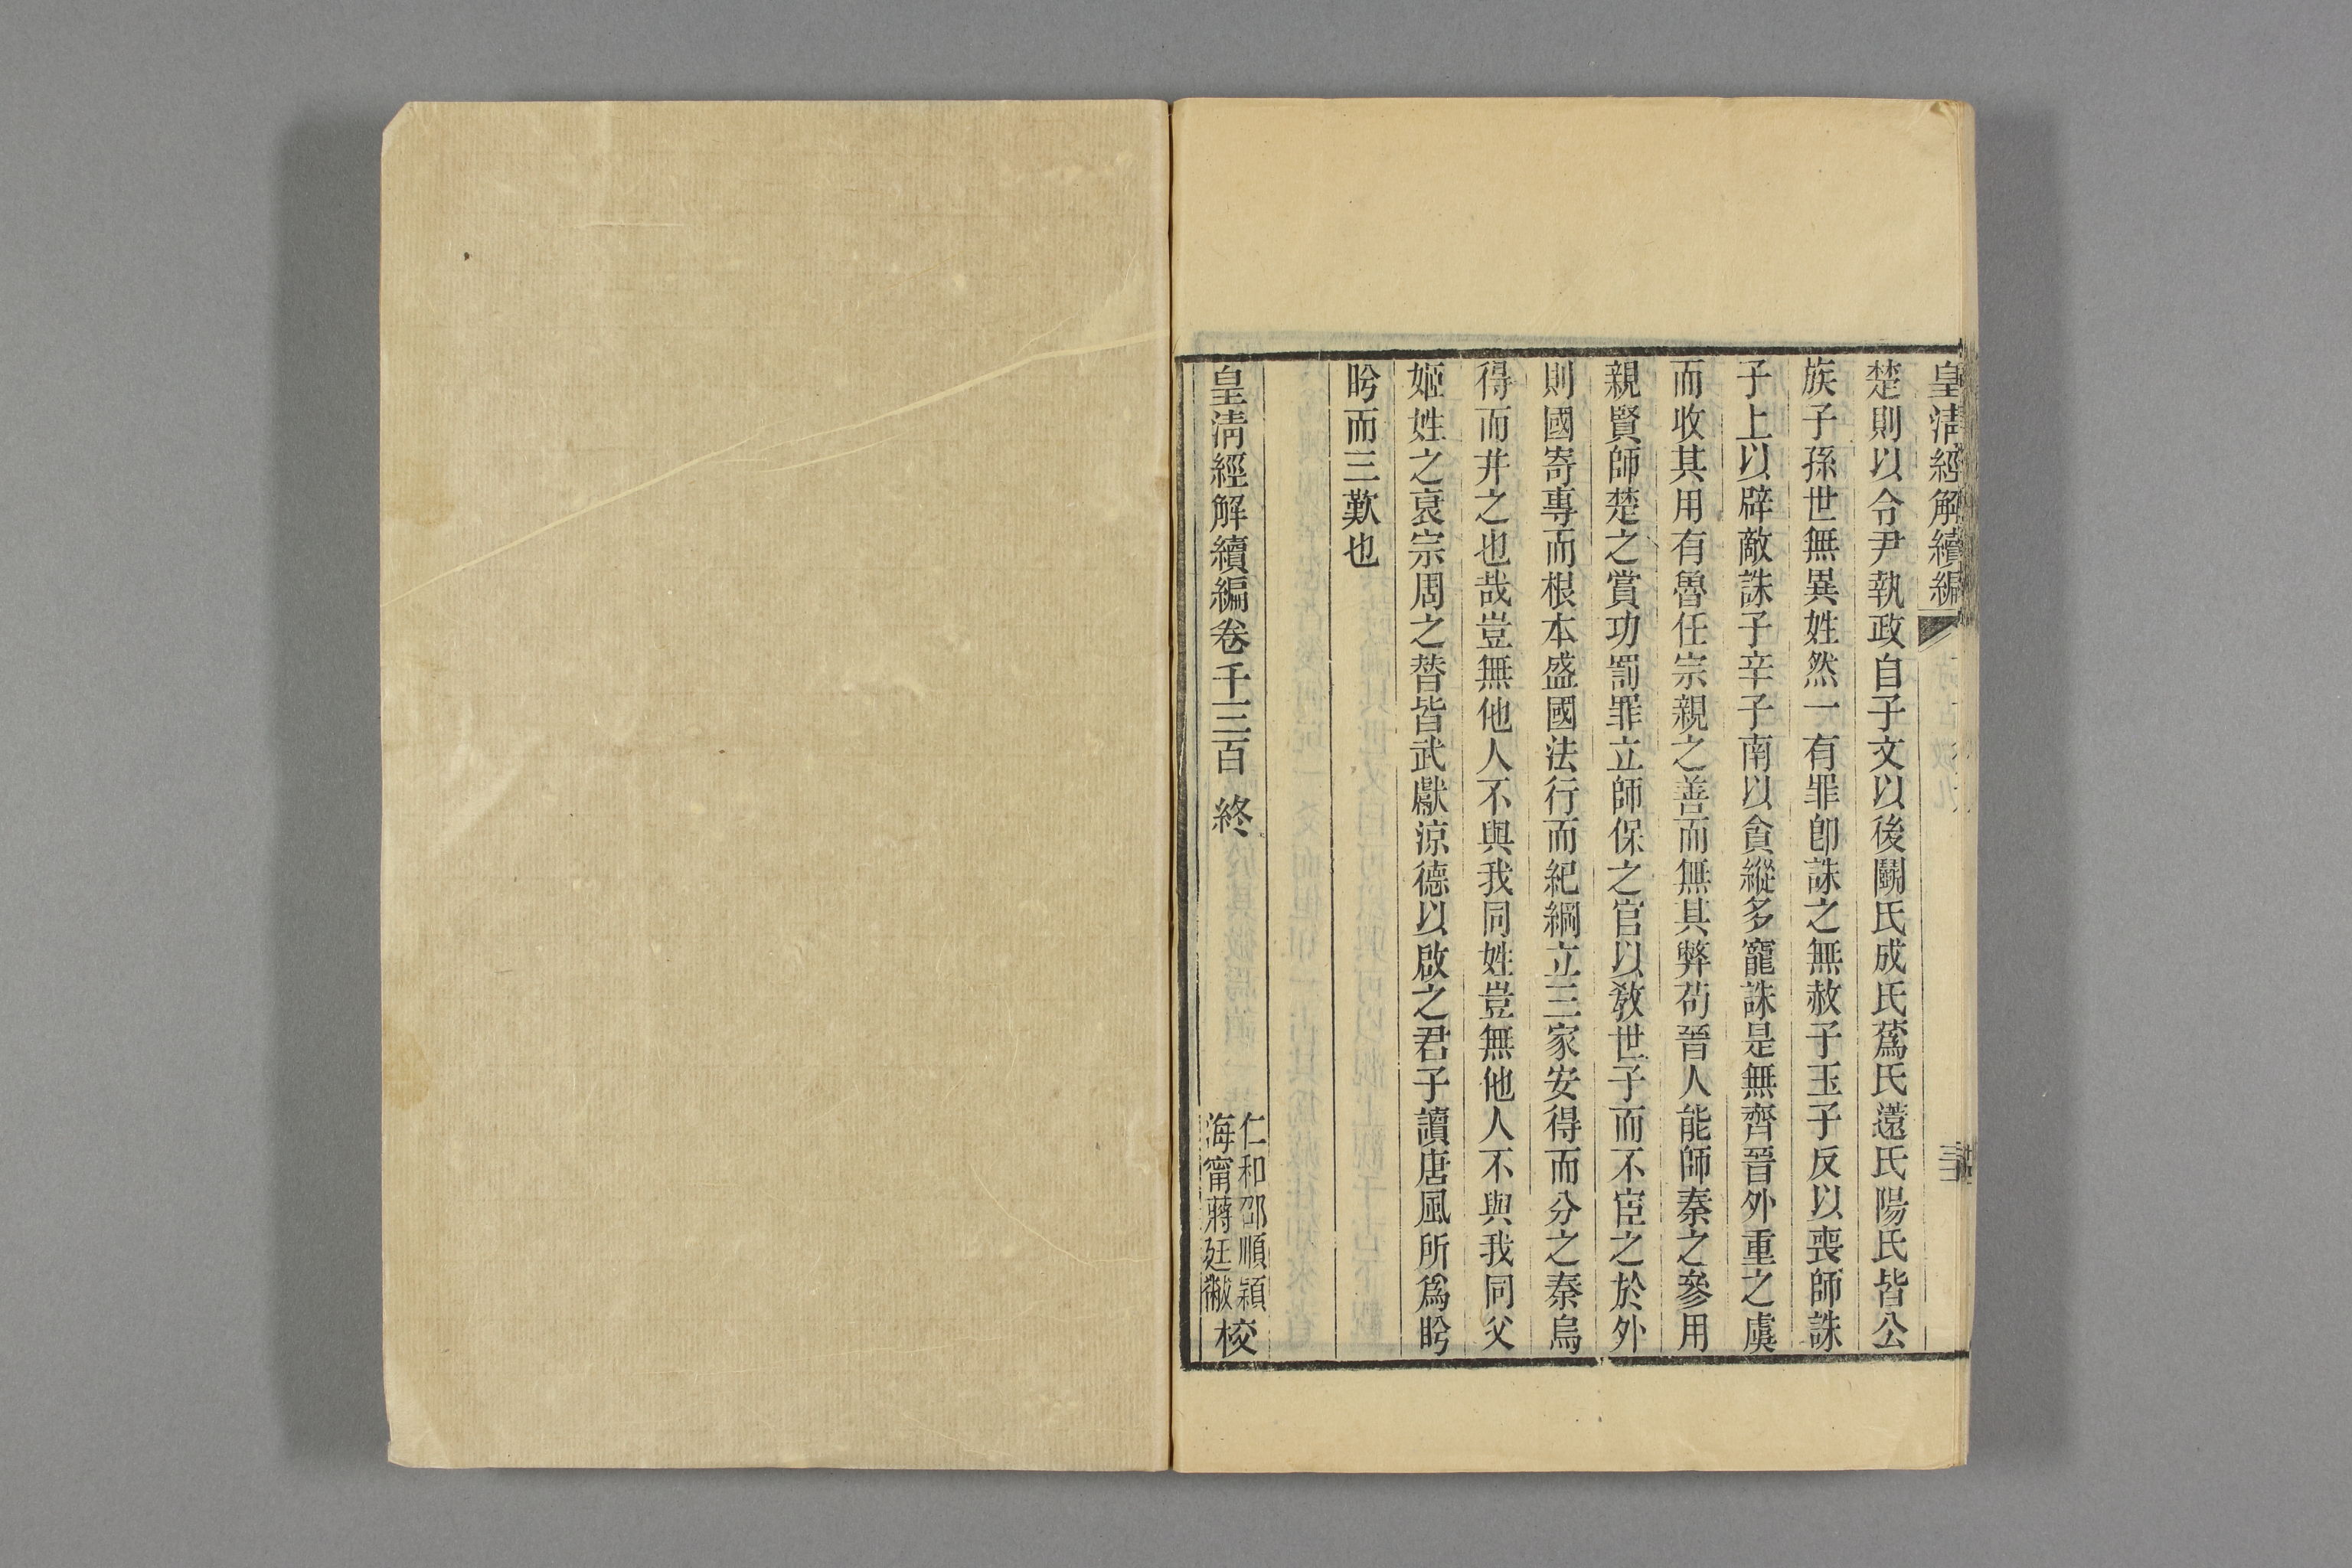 皇清經解續編
楚則以令尹執政自子文以後鬭氏成氏蔿氏薳氏陽氏皆公
族子孫世無異姓然一有罪卽誅之無赦子玉子反以喪師誅
子上以辟敵誅子辛子南以貪縱多寵誅是無齊晉外重之虞
而收其用有魯任宗親之善而無其弊茍晉人能師秦之參用
親賢師楚之賞功罰罪立師保之官以敎世子而不宦之於外
則國寄專而根本盛國法行而紀綱立三家安得而分之秦烏
得而幷之也哉豈無他人不與我同姓豈無他人不與我同父
姬姓之衰宗周之替皆武獻涼德以啟之君子讀唐風所爲盻
盻而三歎也
皇清經解續編卷千三百 終
仁和邵順穎
海甯蔣廷黻 校